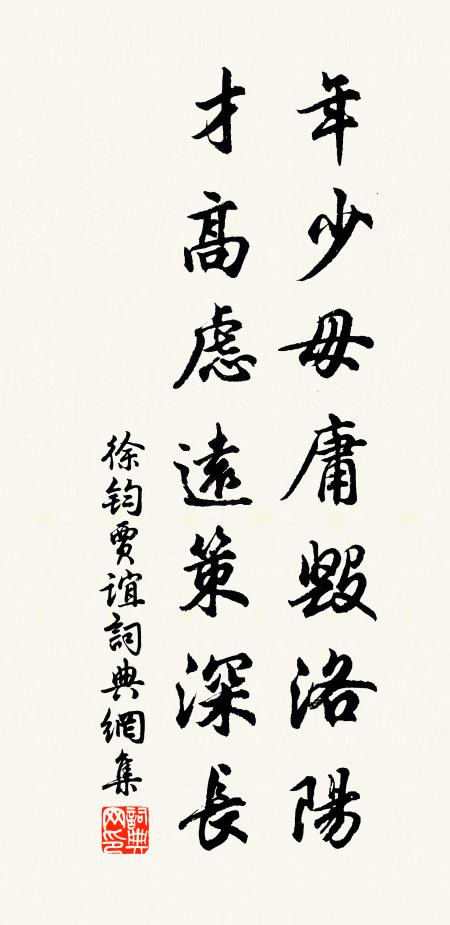 年少毋庸毀洛陽
才高慮遠策深長
徐鈞賈誼詞典網集
詞典网印